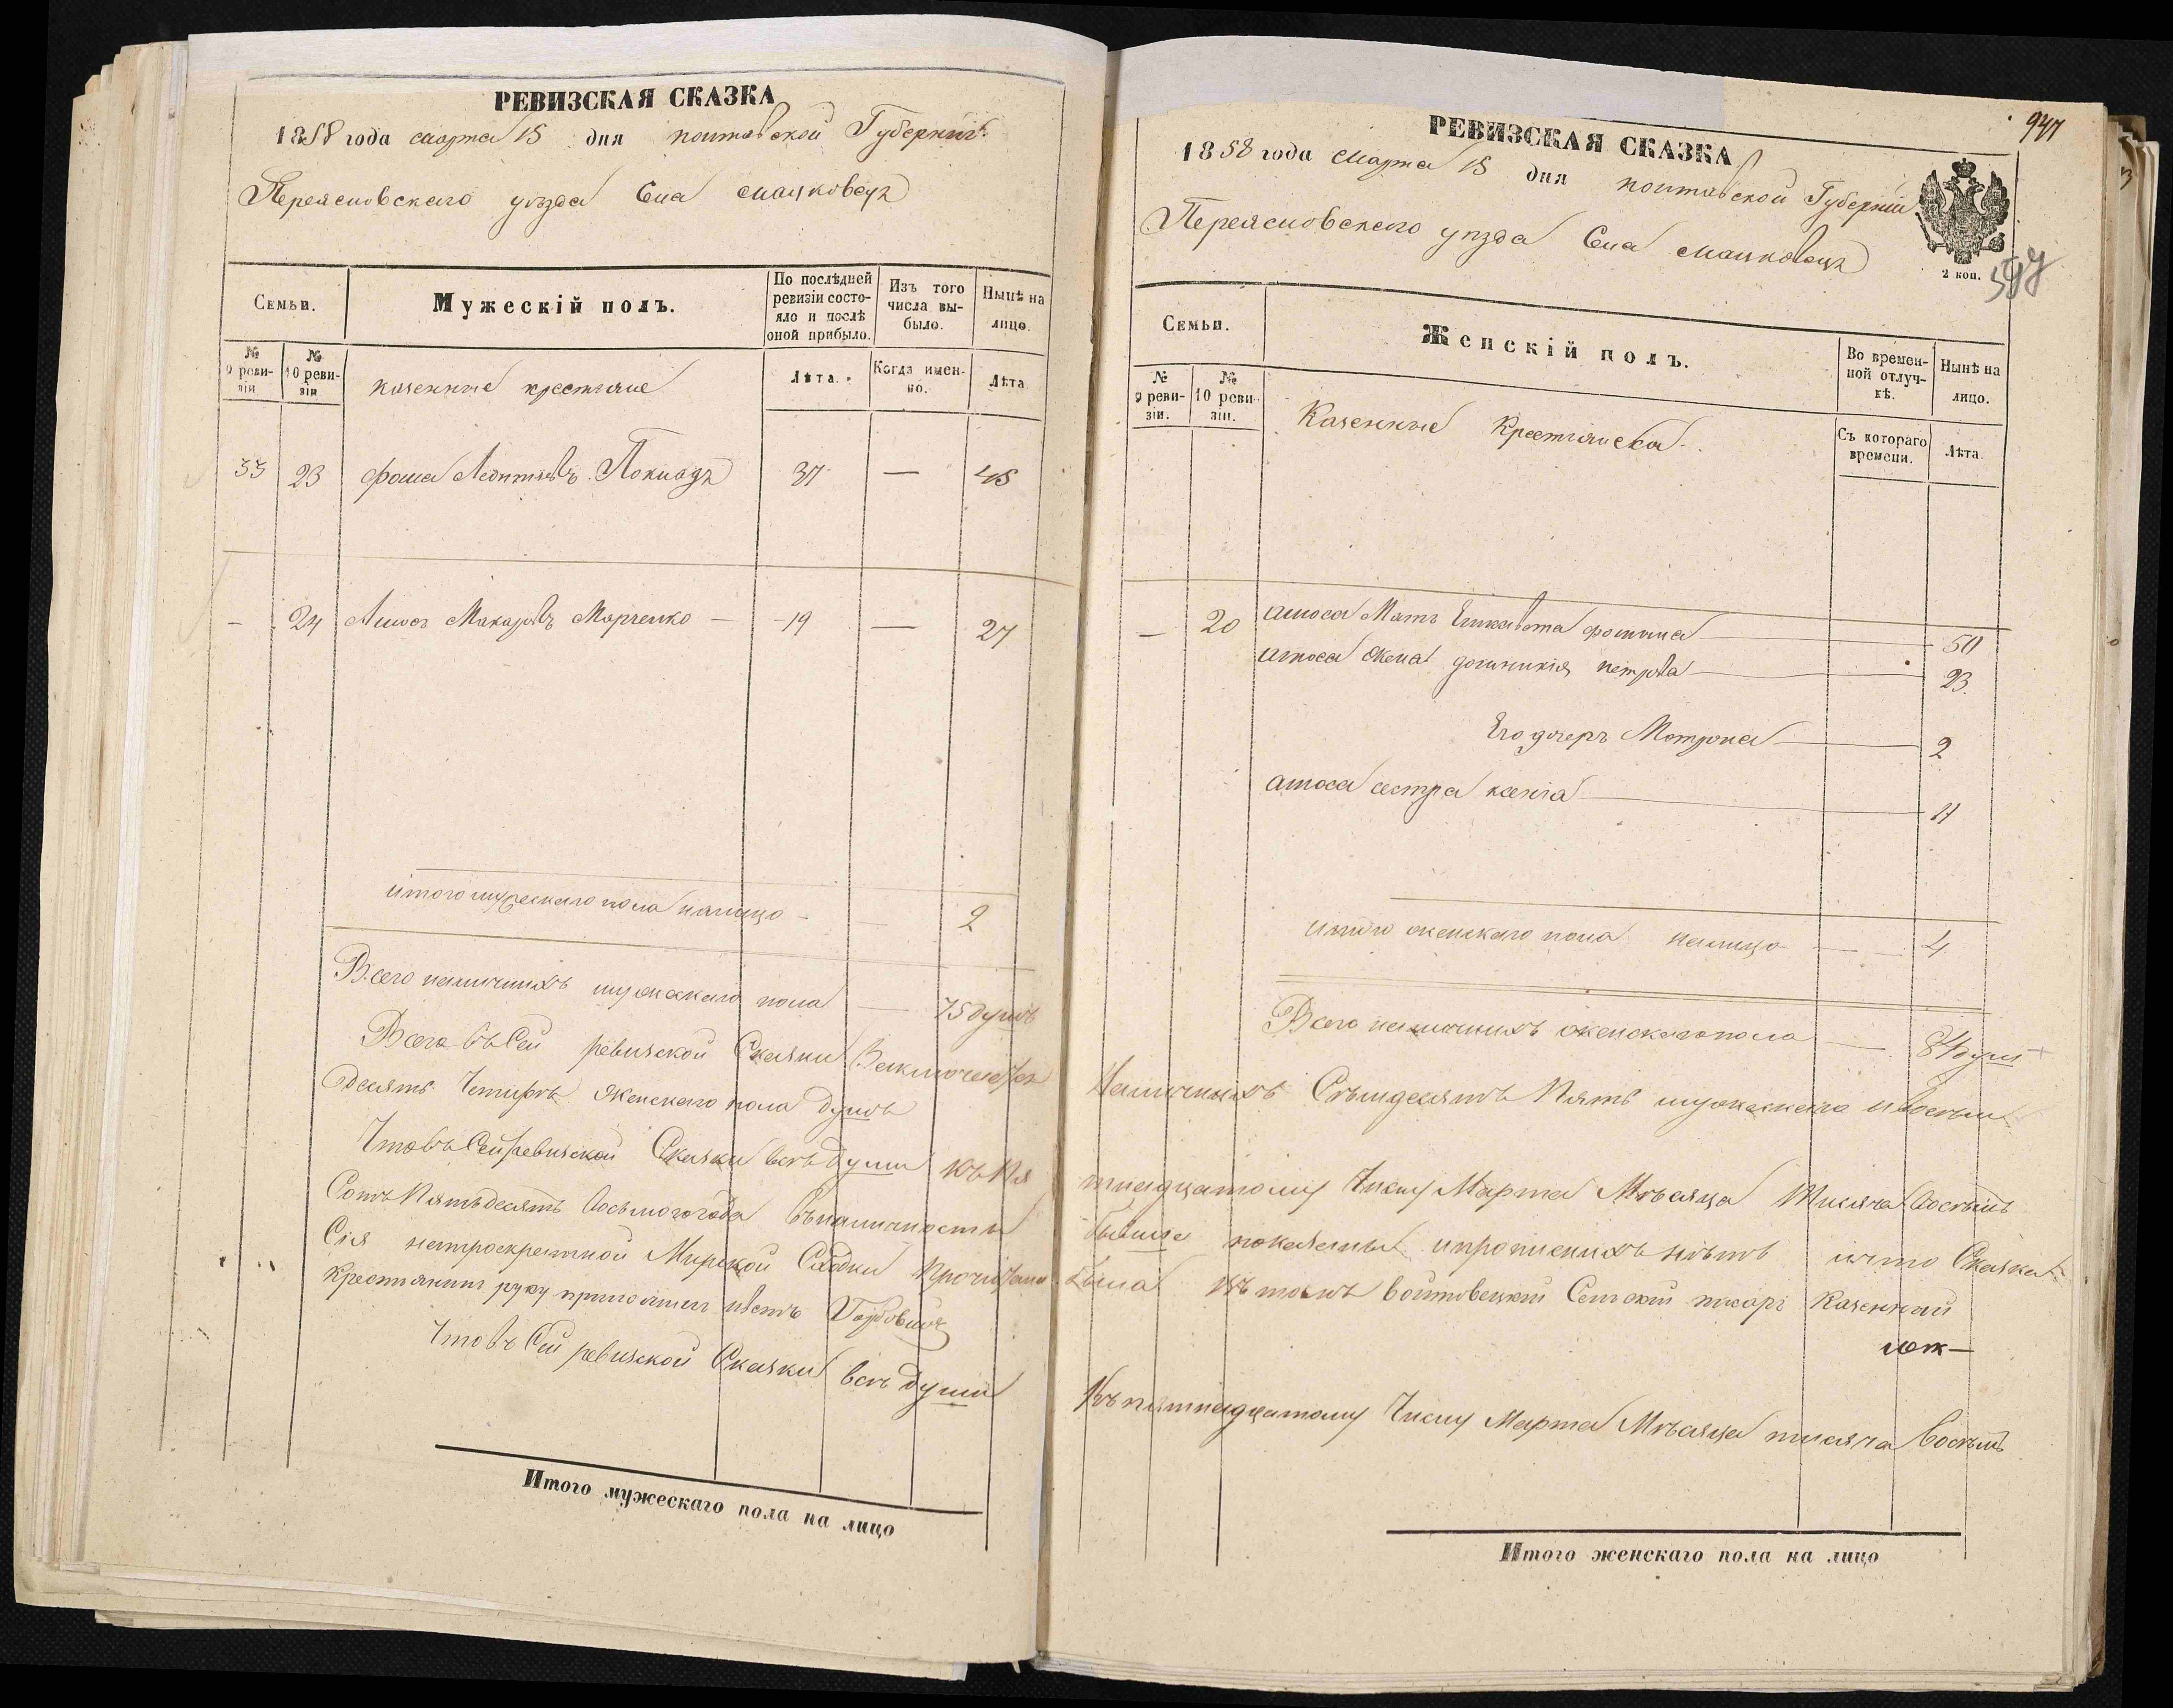 РЕВИЗСКАЯ СКАЗКА
1858 года марта 15 дня полтавской Губерніи
Переясловскаго уѣзда Села
Семьи.
Мужескій полъ.
По послѣдней ревизіи состояло и послѣ оной прибыло.
Изъ того числа выбыло.
Нынѣ на лицо.
№ 9 ревизіи
№ 10 ревизіи
казенные крестьяне
Лѣта.
Когда именно.
Лѣта
33 23 фома Леонтіевъ Покладъ 37 — 45
— 24 Амосъ Макаровъ Марченко — 19 — 27
итого мужескаго пола налицо — 2
Всего наличныхъ мужескаго пола — 75 душъ
Всего въ Сей ревизской Сказки
десять Четыре женскаго пола душъ
Что въ Сей ревизской Сказки всѣ души къ пя
Сотъ Пятьдесятъ Восьмого года въ наличности
Сія Мирской Сходки Прочитана
крестьянинъ руку приложилъ
Что въ Сей ревизской Сказки всѣ души
Итого мужескаго пола на лицо
947
РЕВИЗСКАЯ СКАЗКА
1858 года Марта 15 дня полтавской Губерніи
Переясловскаго уѣзда Села
2 коп.
597
Семьи.
Женскій полъ.
Во временной отлучкѣ.
Нынѣ на лицо.
№ 9 ревизіи.
№ 10 ревизіи.
Казенные Крестьянска
Съ котораго времени.
Лѣта.
— 20 амоса Мать Елисавета фомина 50
амоса жена домникія петрова 23
Его дочерь Мотрона 2
амоса сестра ксенія 11
итого женскаго пола налицо — 4
Всего наличныхъ женскаго пола — 84 душ
Наличныхъ Семдесятъ Пять мужескаго и восемь
тнадцатому Числу Марта Мѣсяца Тисяча Восемь
бывше показаны и прописныхъ нѣтъ и что Сказка
была въ томъ войтовецкій Сельскій писарь Казенный
лож—
Къ пятнадцатому Числу Марта Мѣсяца тисяча Восемь
Итого женскаго пола на лицо